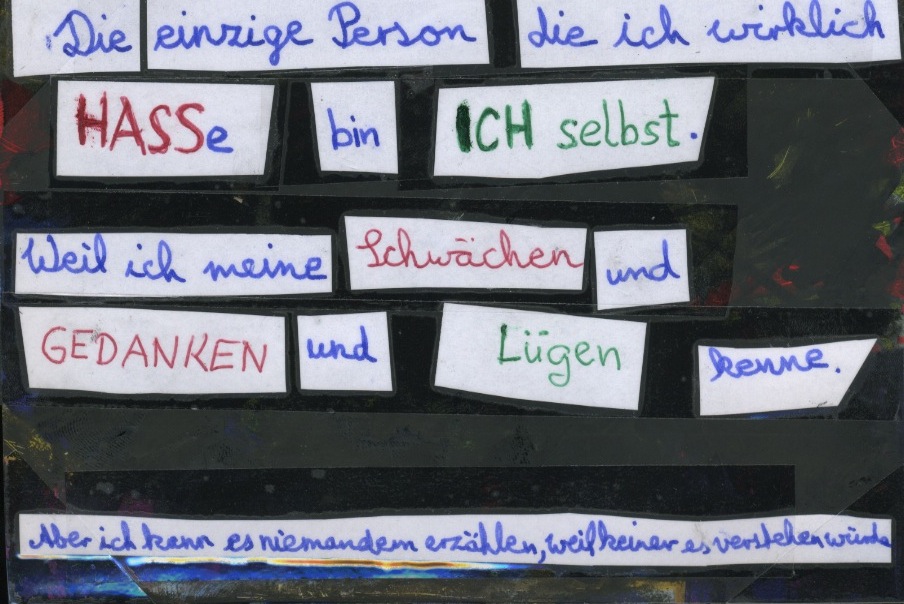 Die einzige Person die ich wirklich
HASSe bin ICH selbst.
Weil ich meine Schwächen und
GEDANKEN und Lügen kenne.
Aber ich kann es niemandem erzählen, weil keiner es verstehen würde